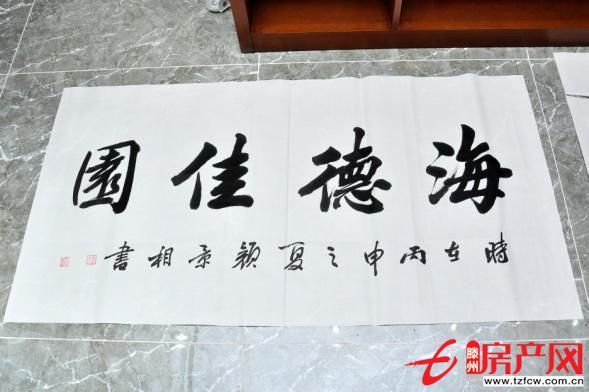 海德佳園
時在丙申之夏穎景相書
滕州
房产网
www.tzfcw.com.cn